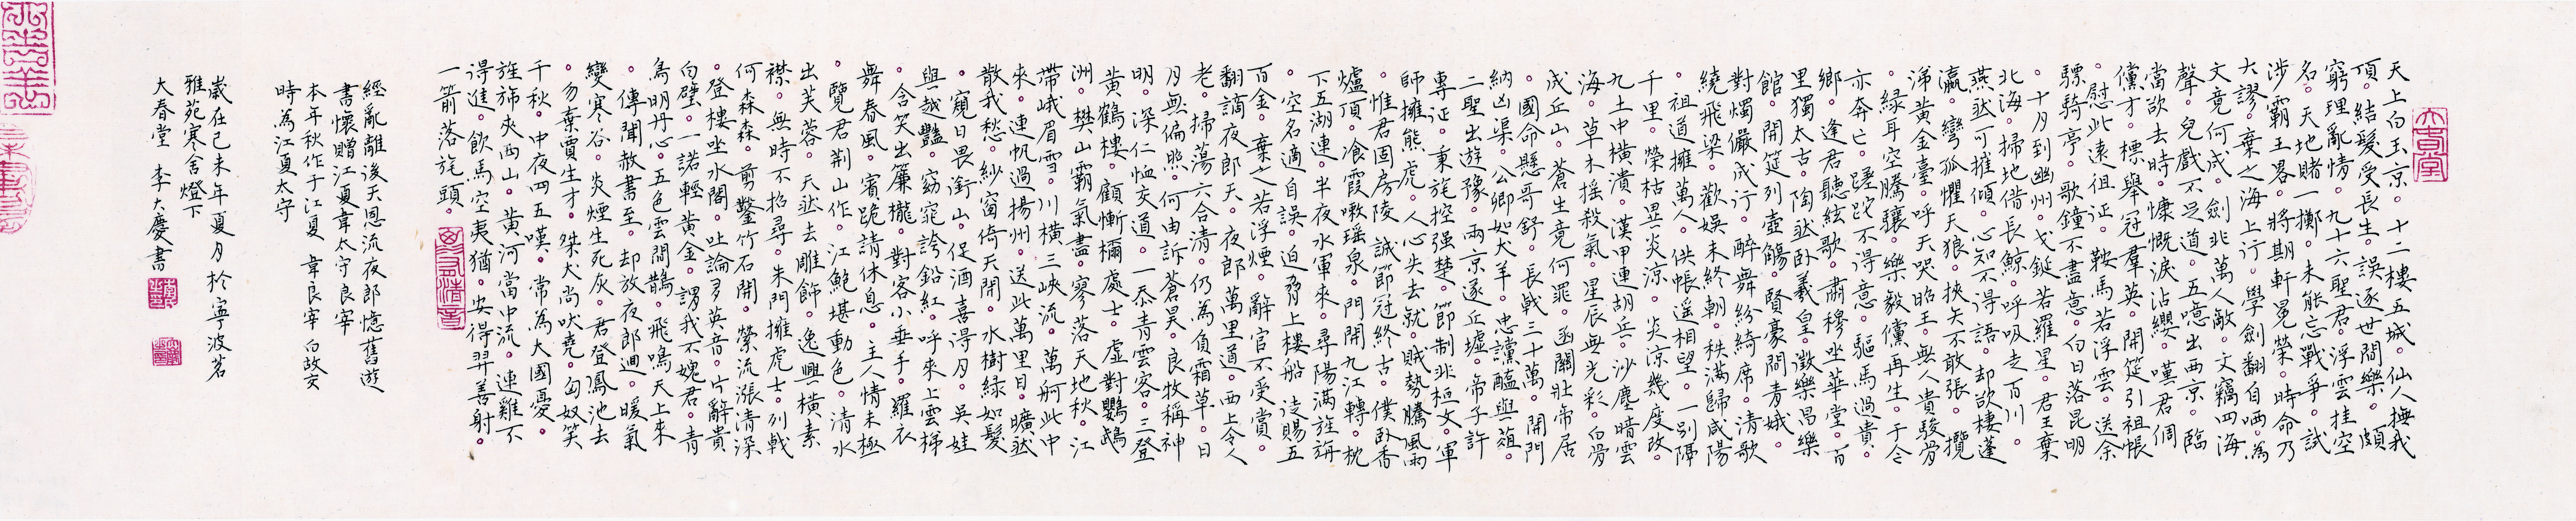 天上白玉京。十二樓五城。仙人撫我
頂。結髮受長生。誤逐世間樂。頗
窮理亂情。九十六聖君。浮雲挂空
名。天地賭一擲。未能忘戰爭。試
涉霸王畧。將期軒冕榮。時命乃
大謬。棄之海上行。學劍翻自哂。為
文竟何成。劍非萬人敵。文竊四海
聲。兒戲不足道。五噫出西京。臨
當欲去時。慷慨淚沾纓。嘆君倜
儻才。標舉冠羣英。開筵引祖帳
。慰此遠徂征。鞍馬若浮雲。送余
驃騎亭。歌鐘不盡意。白日落昆明
。十月到幽州。戈鋋若羅星。君王棄
北海。掃地借長鯨。呼吸走百川。
燕然可摧傾。心知不得語。却欲棲蓬
瀛。彎弧懼天狼。挾矢不敢張。攬
涕黃金臺。呼天哭昭王。無人貴駿骨
。緑耳空騰驤。樂毅儻再生。于今
亦奔亡。蹉跎不得意。驅馬過貴。
鄉。逢君聽絃歌。肅穆坐華堂。百
里獨太古。陶然臥羲皇。徵樂昌樂
館。開筵列壺觴。賢豪間青娥。
對燭儼成行。醉舞紛綺席。清歌
繞飛梁。歡娛未終朝。秩滿歸咸陽
。祖道擁萬人。供帳遥相望。一別隔
千里。榮枯異炎涼。炎涼幾度改。
九土中橫潰。漢甲連胡兵。沙塵暗雲
海。草木摇殺氣。星辰無光彩。白骨
成丘山。蒼生竟何罪。函關壯帝居
。國命懸哥舒。長戟三十萬。開門
納凶渠。公卿如犬羊。忠讜醢與菹。
二聖出遊豫。兩京遂丘墟。帝子許
專征。秉旄控强楚。節制非桓文。軍
師擁熊虎。人心失去就。賊勢騰風雨
。惟君固房陵。誠節冠終古。僕臥香
爐頂。飡霞嗽瑶泉。門開九江轉。枕
下五湖連。半夜水軍來。尋陽滿旌旃
。空名適自誤。迫脅上樓船。徒賜五
百金。棄之若浮煙。辭官不受賞。
翻謫夜郎天。夜郎萬里道。西上令人
老。掃蕩六合清。仍為負霜草。日
月無偏照。何由訴蒼昊。良牧稱神
明。深仁恤交道。一忝青雲客。三登
黃鶴樓。顧慚禰處士。虛對鸚鵡
洲。樊山霸氣盡。寥落天地秋。江
帶峨眉雪。川橫三峽流。萬舸此中
來。連帆過揚州。送此萬里目。曠然
散我愁。紗窗倚天開。水樹緑如髮
。窺日畏銜山。促酒喜得月。吳娃
與越艷。窈窕誇鉛紅。呼來上雲梯
。含笑出簾櫳。對客小垂手。羅衣
舞春風。賓跪請休息。主人情未極
。覽君荆山作。江鮑堪動色。清水
出芙蓉。天然去雕飾。逸興橫素
襟。無時不招尋。朱門擁虎士。列戟
何森森。剪鑿竹石開。縈流漲清深
。登樓坐水閣。吐論多英音。片辭貴
白璧。一諾輕黃金。謂我不媿君。青
鳥明丹心。五色雲間鵲。飛鳴天上來
。傳聞赦書至。却放夜郎迴。暖氣
變寒谷。炎煙生死灰。君登鳳池去
。勿棄賈生才。桀犬尚吠堯。匈奴笑
千秋。中夜四五嘆。常為大國憂。
旌旆夾兩山。黃河當中流。連雞不
得進。飲馬空夷猶。安得羿善射。
一箭落旄頭。
經亂離後天恩流夜郎憶舊遊
書懷贈江夏韋太守良宰
本年秋作于江夏 韋良宰白故交
時為江夏太守
歲在己未年夏月於寧波茗
雅苑寒舍燈下
大春堂 李大慶書